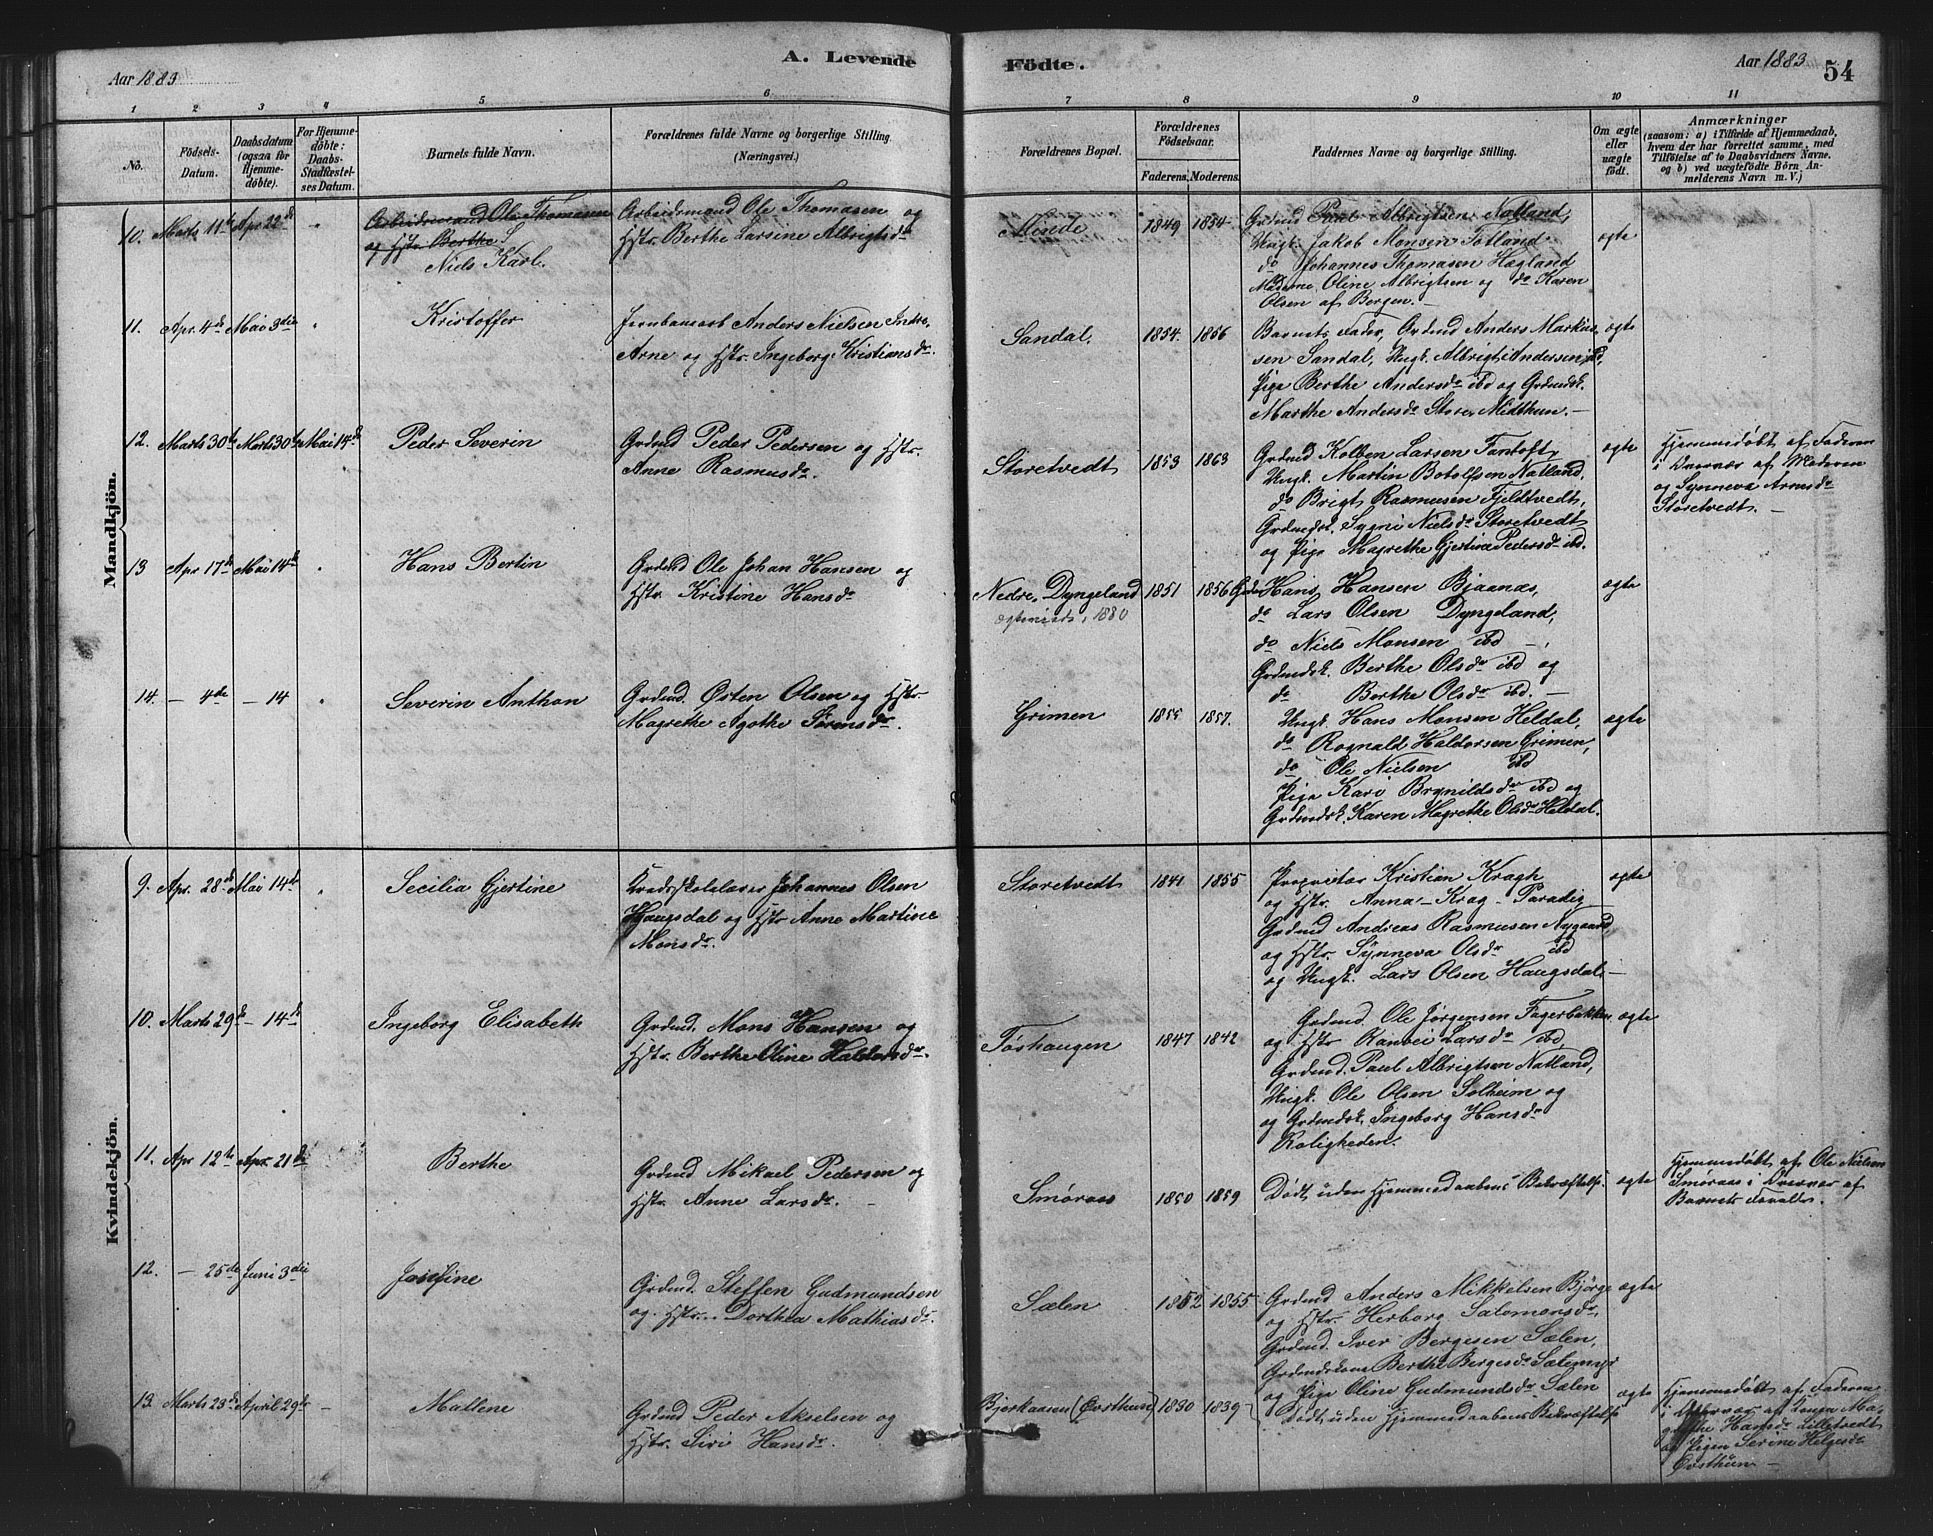 Aar 1883
A. Levende
Födte.
Aar 1883
54
1 2 3 4 5 6 7 8 9 10 11
No.
Födsels-
Datum.
Daabsdatum
(ogsaa for
Hjemme-
döbte).
For Hjemme-
döbte:
Daabs-
Stadfæstel-
ses Datum.
Barnets fulde Navn.
Forældrenes fulde Navne og borgerlige Stilling.
(Næringsvei.)
Forældrenes Bopæl.
Forældrenes
Födselsaar.
Faderens. Moderens.
Faddernes Navne og borgerlige Stilling.
Om ægte
eller
uægte
födt.
Anmærkninger
(saasom: a) i Tilfælde af Hjemmedaab,
hvem der har forrettet samme, med
Tilföielse af to Daabsvidners Navne,
og b) ved uægtefödte Börn An-
melderens Navn m. V.)
Maandkjön.
10. Marts 11te Apr 22de "
Arbeidsmand Ole Thomasen
og Hstr. Berthe L
Niels Karl.
Arbeidsmand Ole Thomasen og
Hstr. Berthe Larsine Albrigtsdr
Minde
1849 1854
Grdmd Paul Albrigtsen Natland,
Ungk. Jakob Monsen Totland
do Johannes Thomasen Hægland
Madame Oline Albrigtsen og do Karen
Olsen af Bergen. —
ægte
11. Apr. 4de Mai 3die "
Kristoffer
Jernbanearb Anders Nielsen Indre
Arne og Hstr. Ingeborg Kristiansdr.
Sandal.
1854. 1856
Barnets Fader, Grdmd Anders Markus
sen Sandal, Ungk. Albrigt Andersen ibd,
Pige Berthe Andersdr ibd og Grdmdsk.
Marthe Andersdr Store Midthun. —
ægte
12. Marts 30te Marts 30te Mai 14de
Peder Severin
Grdmd Peder Pedersen og Hstr.
Anne Rasmusdr.
Storetvedt
1853 1863
Grdmd Kolben Larsen Fantoft,
Ungk. Martin Botolfsen Natland,
do Brigt Rasmusen Fjeldtvedt,
Grdmdsk. Sygni Nielsdr Storetvedt
og Pige Magrethe Gjertine Pedersdr ibd.
ægte
Hjemmedöbt af Faderen
i Nærvær af Moderen
og Synneva Arnesdr
Storetvedt. —
13 Apr 17de Mai 14de "
Hans Bertin
Grdmd Ole Johan Hansen og
Hstr Kristine Hansdr
Nedre Dyngeland
ægteviede, 1880
1851 1856
Grdmd Hans Hansen Bjaanæs,
do Lars Olsen Dyngeland,
do Niels Monsen ibd —,
Grdmdsk. Berthe Olsdr ibd og
do Berthe Olsdr ibd. —
ægte
14. — 4de — 14 "
Severin Anthon
Grdmd. Østen Olsen og Hstr
Magrethe Agathe Sørensdr.
Grimen
1855 1857.
Ungk. Hans Monsen Heldal,
do Rognald Haldorsen Grimen,
do Ole Nielsen ibd
Pige Kari Brynildsdr ibd og
Grdmdsk. Karen Magrethe Olsdr Heldal.
ægte
Kvindekjön.
9. Apr. 28de Mai 14de "
Secilia Gjertine
Kredsskolelærer Johannes Olsen
Haugsdal og Hstr Anne Martine
Monsdr.
Storetvedt
1841 1855
Proprietær Kristian Kragh
og Hstr. Anna — Krag — Paradis —
Grdmd Andreas Rasmusen Nygaard,
og Hstr. Synneva Olsdr ibd
og Ungk. Lars Olsen Haugsdal. —
ægte
10. Marts 29de — 14de
Ingeborg Elisabeth
Grdmd. Mons Hansen og
Hstr. Berthe Oline Haldorsdr.
Töshaugen
1847 1842
Grdmd. Ole Jørgensen Fagerbakke
og Hstr Ranvei Larsdr ibd,
Grdmd. Paul Albrigtsen Natland,
Ungk. Ole Olsen Solheim og
og Grdmdsk. Ingeborg Hansdr
Roligheden.
ægte
11. Apr 12te Apr. 21de
Berthe
Grdmd Mikael Pedersen og
Hstr. Anne Larsdr. —
Smöraas
1850 1859
Dødt uden Hjemmedaabens Bekræftelse.
ægte
Hjemmedöbt af Ole Nielsen
Smöraas i Nærvær af
Barnets Forældre.
12. — 25de Juni 3die
Josefine
Grdmd. Steffen Gudmundsen
og Hstr. Dorthea Mathiasdr.
Sælen
1852 1855
Grdmd Anders Mikkelsen Bjørge
og Hstr. Herborg Salomonsdr,
Grdmd. Iver Bergesen Sælen,
Grdmdskone Berthe Bergesdr Sælemyr
og Pige Oline Gudmundsdr Sælen
ægte
13. Marts 23de April 29de —
Mallene
Grdmd Peder Akselsen og
Hstr. Siri Hansdr.
Bjerkaasen (Øvsthun)
1830 1839
Dødt uden Hjemmedaabens Bekræftelse
ægte
Hjemmedöbt af Faderen
i Nærvær af Ma-
grethe Hansdr Lilletvedt
og Pigen Serine Helgesdr
Øvsthun —